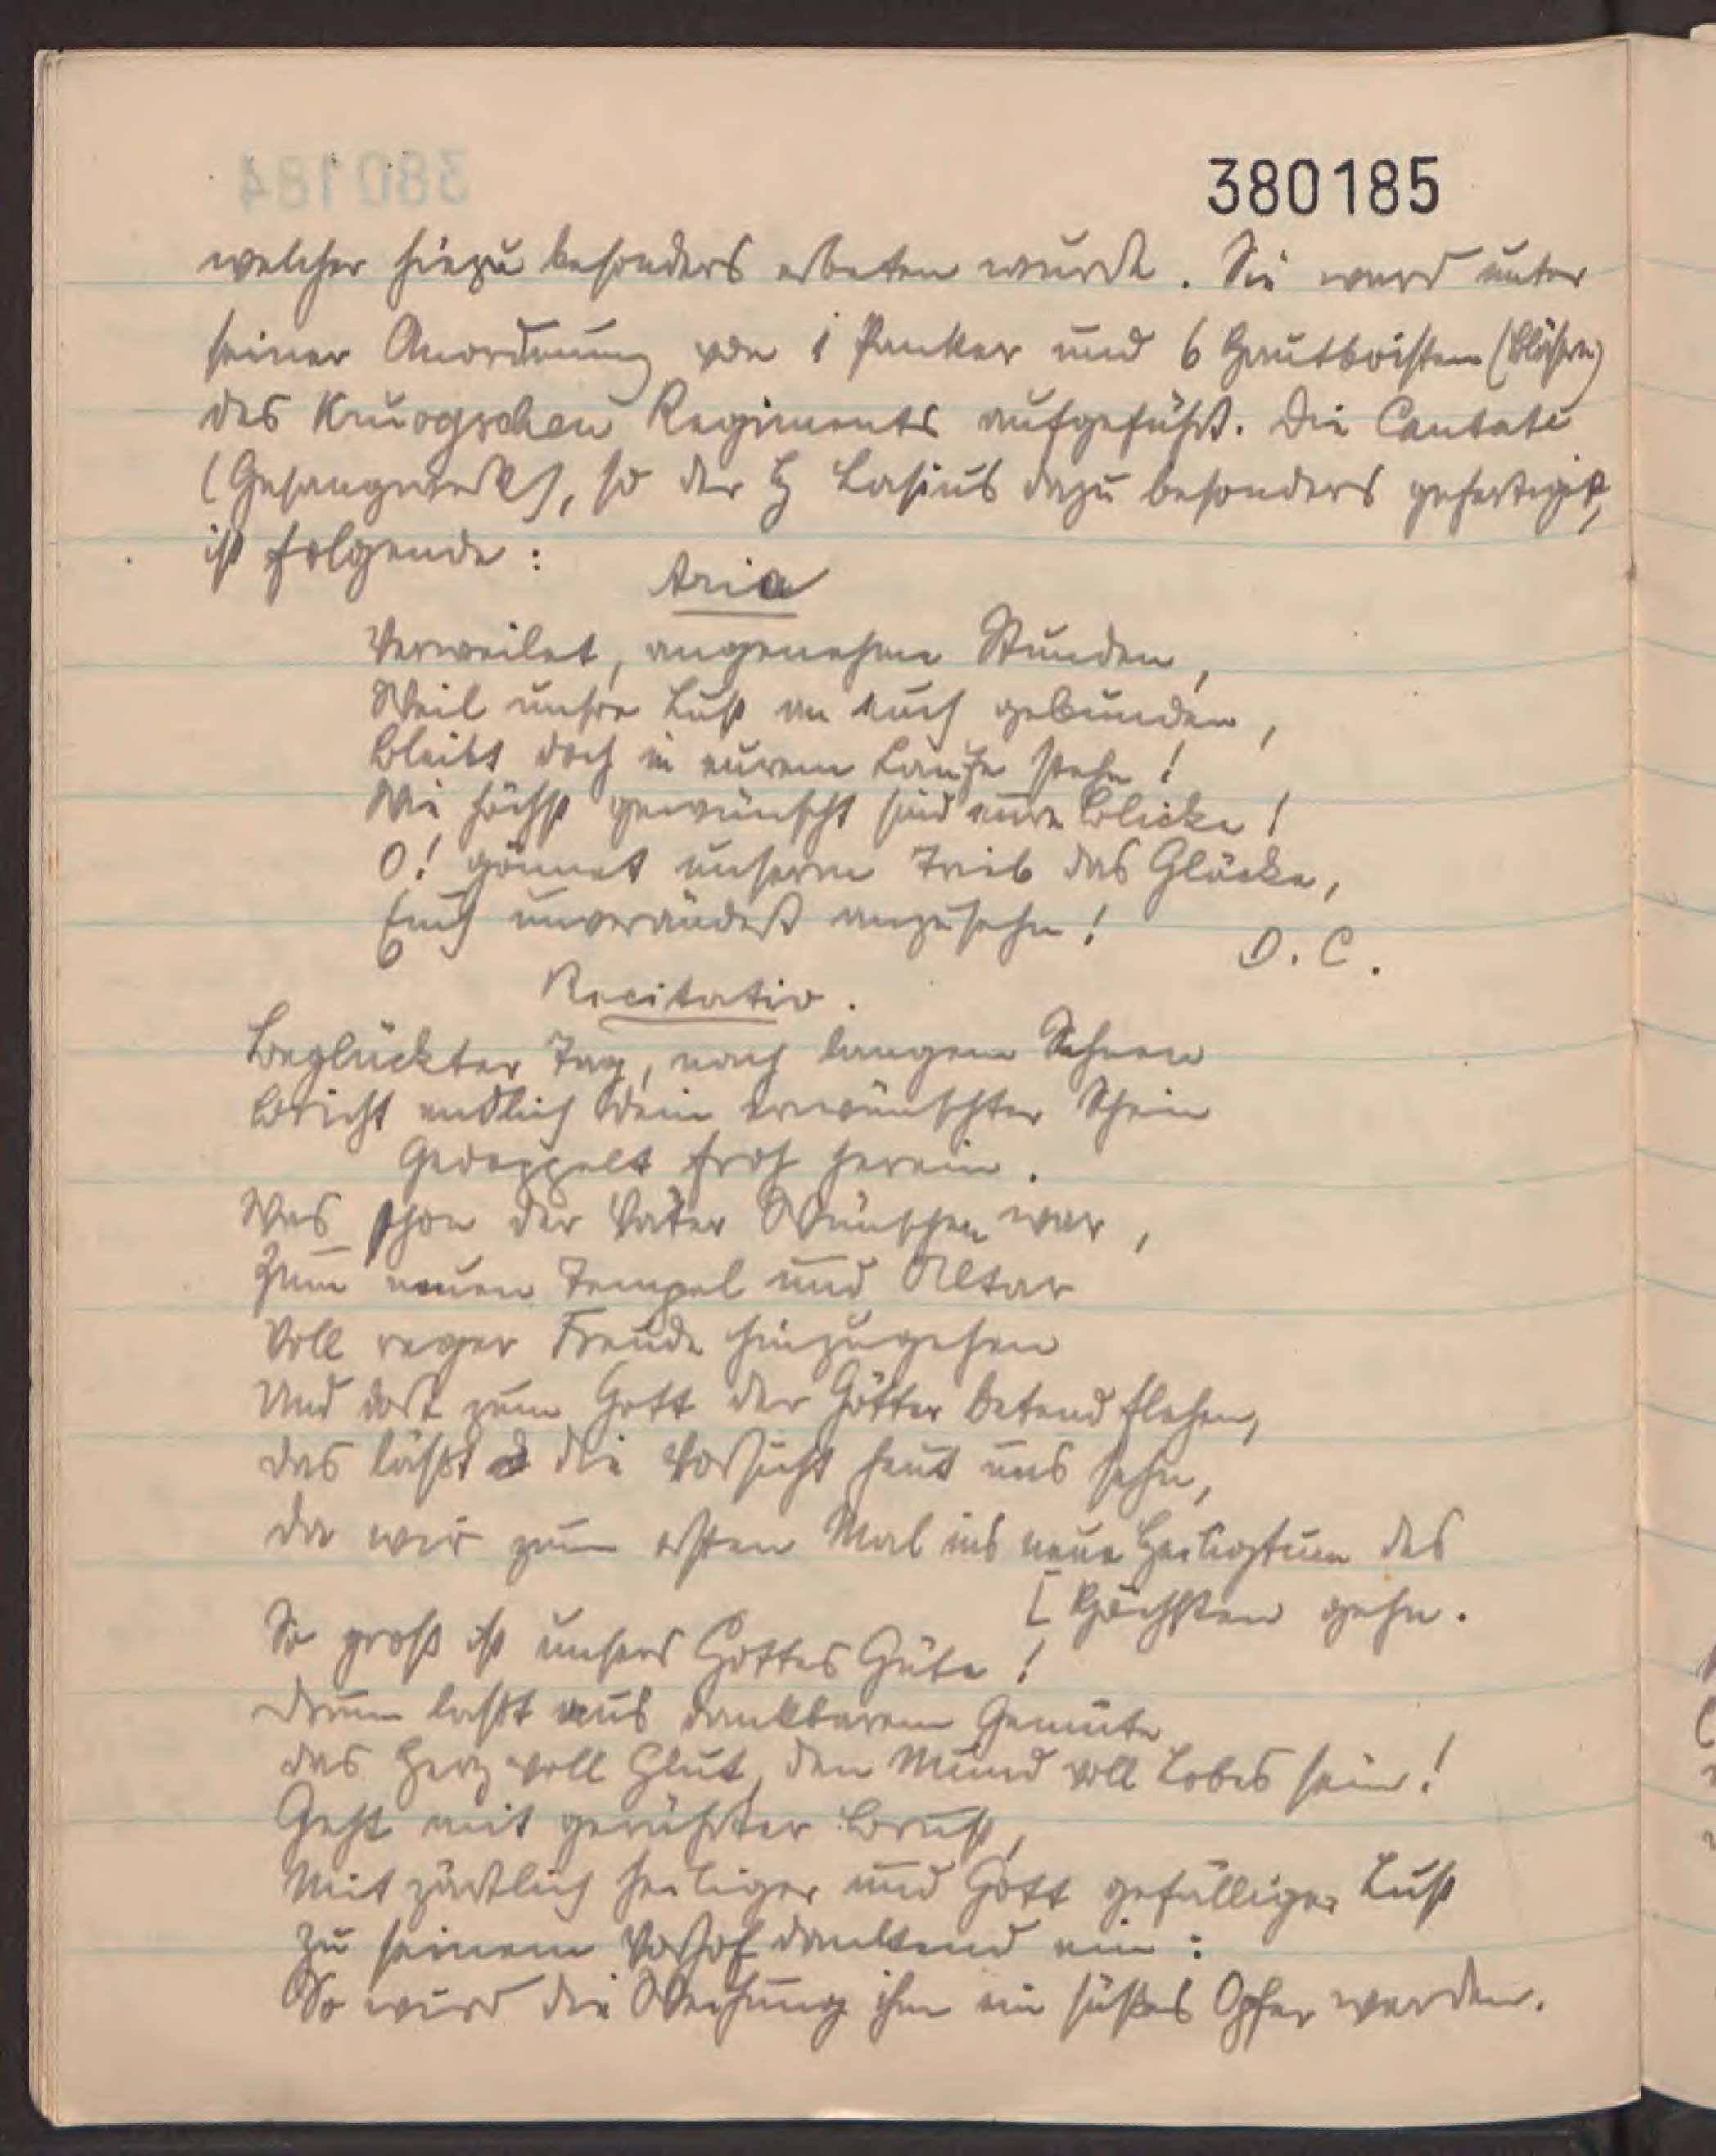 380185
welcher hiezu besonders erbeten wurde. Sie ward unter
seiner Anordnung von 1 Pauker und 6 Hautboisten (Bläsern)
des Regiments aufgeführt. Die Cantate
(Gesangwerk), so der H Lasius dazu besonders gefertigt,
ist folgende:
Aria
Verweilet, angenehme Stunden,
Weil unsre Lust an euch gebunden,
Bleibt doch in eurem Laufe stehn!
Wie höchst gewünscht sind eure Blicke!
O! gönnet unserm Trieb das Glücke,
Euch unverändert anzusehn!
D. C.
Recitativ.
Beglückter Tag, nach langem Sehnen
Bricht endlich dein erwünschter Schein
Gedoppelt froh herein.
Was schon der Väter Wünschen war,
Zum neuen Tempel und Altar
Voll reger Freude hinzugehen
Und dort zum Gott der Götter betend flehen,
das läßt die Vorsicht heut uns sehn,
da wir zum ersten Mal ins neue Heiligtum des
[Höchsten gehn.
So groß ist unsers Gottes Güte!
Drum laßt aus dankbarem Gemüte
das Herz voll Glut, den Mund voll Lobes sein!
Geht mit gerührter Brust,
Mit zärtlich heiliger und Gott gefälliger Lust
Zu seinem Vorhof dankend ein:
So wird die Weihung ihm ein süßes Opfer werden.